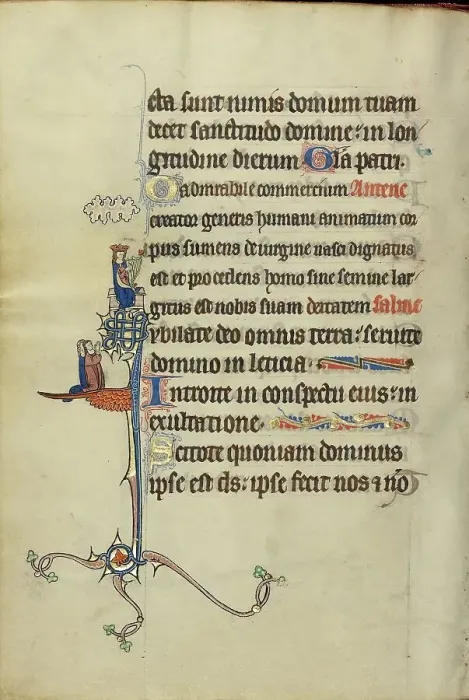 cta sunt nimis domum tuam
decet sanctitudo domine: in lon
gitudine dierum Gla patri.
O admirabile commercium Antene
creator generis humani animatum cor
pus sumens de uirgine nasci dignatus
est et procedens homo sine semine lar
gitus est nobis suam deitatem Salme
Iubilate deo omnis terra: seruite
domino in leticia.
Introite in conspectu eius: in
exultatione.
Scitote quoniam dominus
ipse est ds: ipse fecit nos ⁊ nō